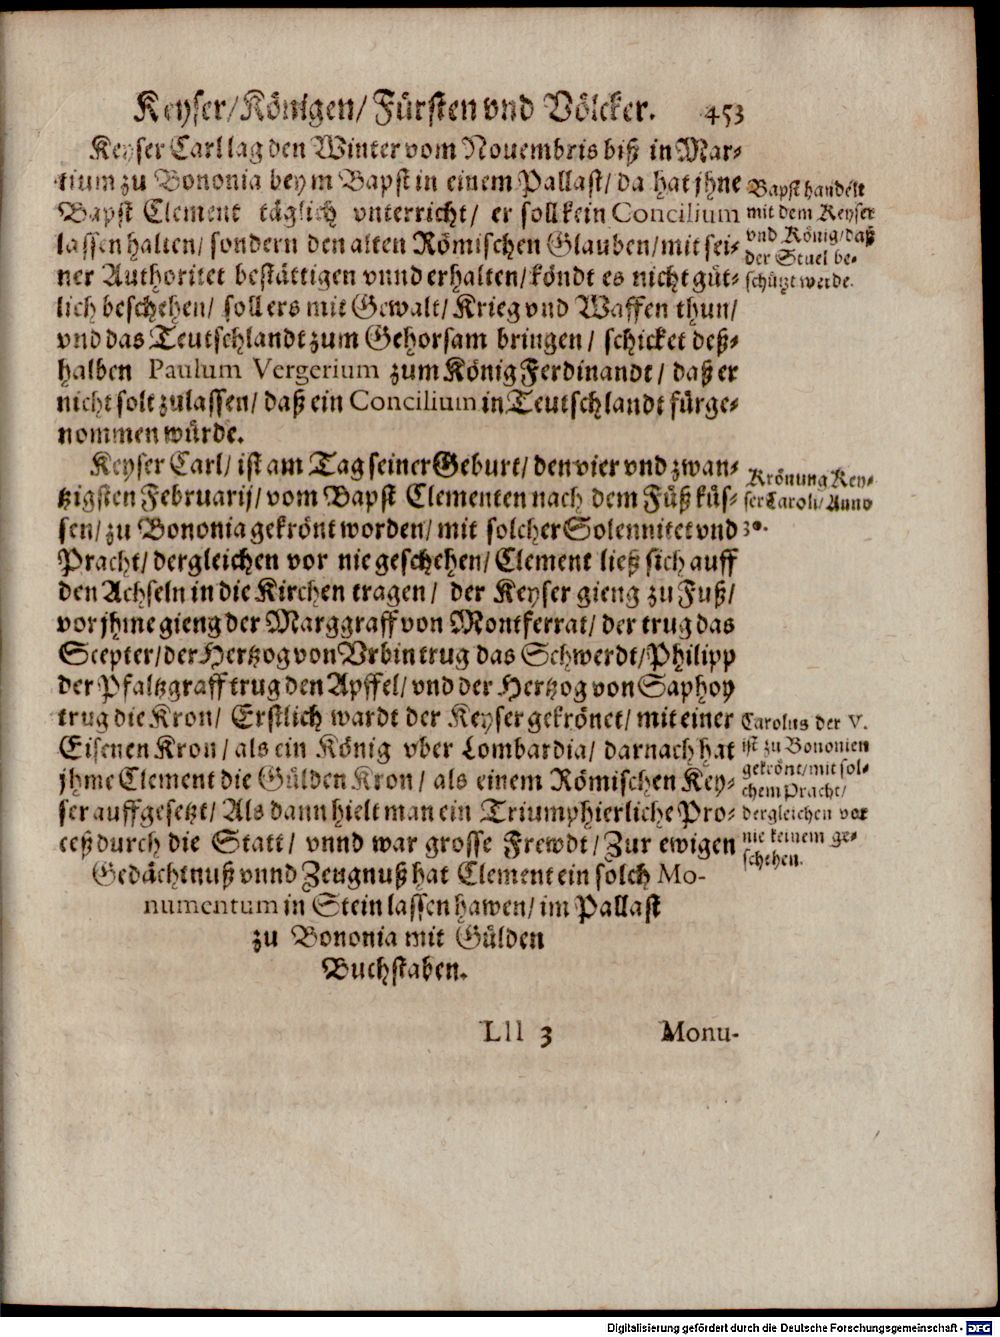 Keyser/Königen/Fürsten vnd Völcker. 453
Keyser Carl lag den Winter vom Nouembris biß in Mar-
tium zu Bononia beym Bapst in einem Pallast/ da hat jhne
Bapst Clement täglich vnterricht/ er soll kein Concilium
lassen halten/ sondern den alten Römischen Glauben/ mit sei-
ner Authoritet bestättigen vnnd erhalten/ köndt es nicht güt-
lich beschehen/ soll ers mit Gewalt/ Krieg vnd Waffen thun/
vnd das Teutschlandt zum Gehorsam bringen/ schicket deß-
halben Paulum Vergerium zum König Ferdinandt/ daß er
nicht solt zulassen/ daß ein Concilium in Teutschlandt fürge-
nommen würde.
Bapst handelt
mit dem Keyser
vnd König/ daß
der Stuel be-
schützt werde.
Keyser Carl/ ist am Tag seiner Geburt/ den vier vnd zwan-
tzigsten Februarij/ vom Bapst Clementen nach dem Füß küs-
sen/ zu Bononia gekrönt worden/ mit solcher Solennitet vnd
Pracht/ dergleichen vor nie geschehen/ Clement ließ sich auff
den Achseln in die Kirchen tragen/ der Keyser gieng zu Fuß/
vor jhme gieng der Marggraff von Montferrat/ der trug das
Scepter/ der Hertzog von Vrbin trug das Schwerdt/ Philipp
der Pfaltzgraff trug den Apffel/ vnd der Hertzog von Saphoy
trug die Kron/ Erstlich wardt der Keyser gekrönet/ mit einer
Eisenen Kron/ als ein König vber Lombardia/ darnach hat
jhme Clement die Gülden Kron/ als einem Römischen Key-
ser auffgesetzt/ Als dann hielt man ein Triumphierliche Pro-
ceß durch die Statt/ vnnd war grosse Frewdt/ Zur ewigen
Gedächtnuß vnnd Zeugnuß hat Clement ein solch Mo-
numentum in Stein lassen hawen/ im Pallast
zu Bononia mit Gülden
Buchstaben.
Krönung Key-
ser Caroli/ Anno
30.
Carolus der V.
ist zu Bononien
gekrönt/ mit sol-
chem Pracht/
dergleichen vor
nie keinem ge-
schehen.
Lll 3 Monu-
Digitalisierung gefördert durch die Deutsche Forschungsgemeinschaft - DFG